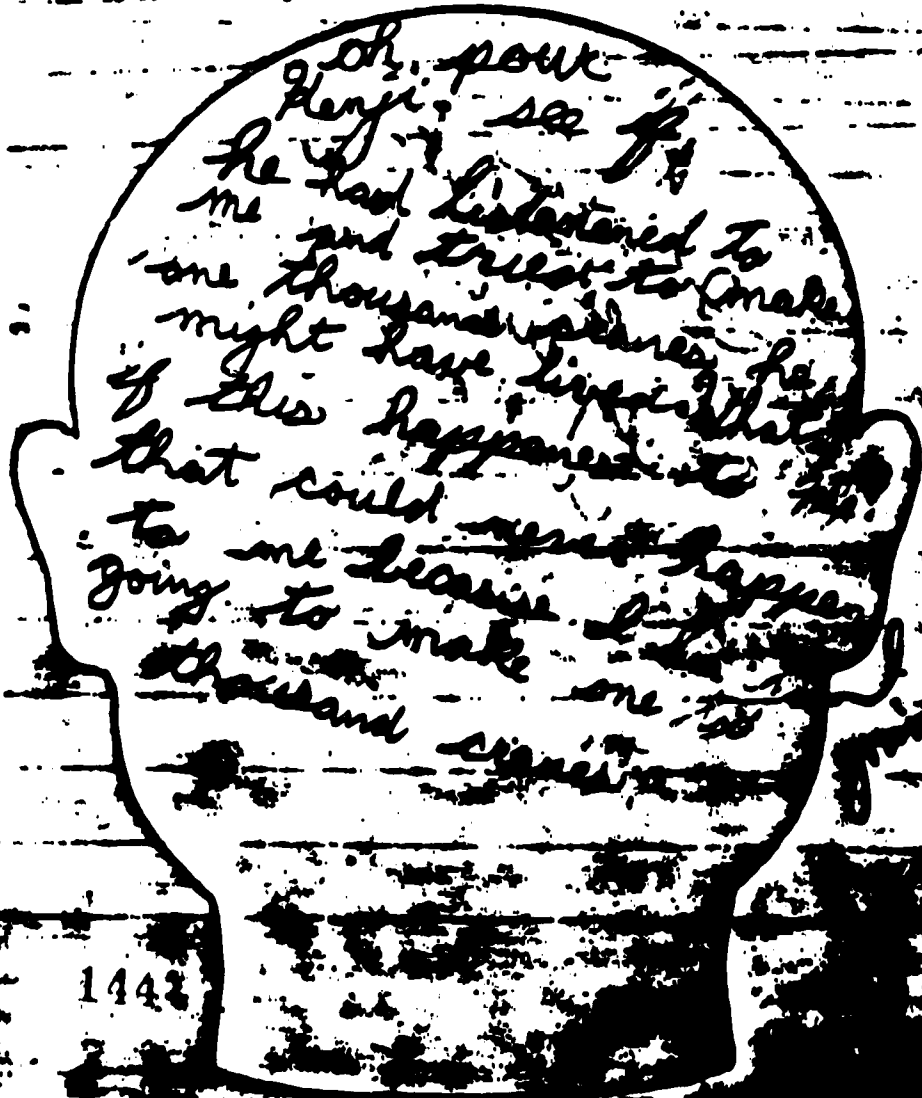 oh, pour
Kenji, see if
he had listened to
me and tries to make
one thousand cranes, he
might have lived. that
if this happaned to
that could never happen
to me because I
going to make one
thousand cranes
144